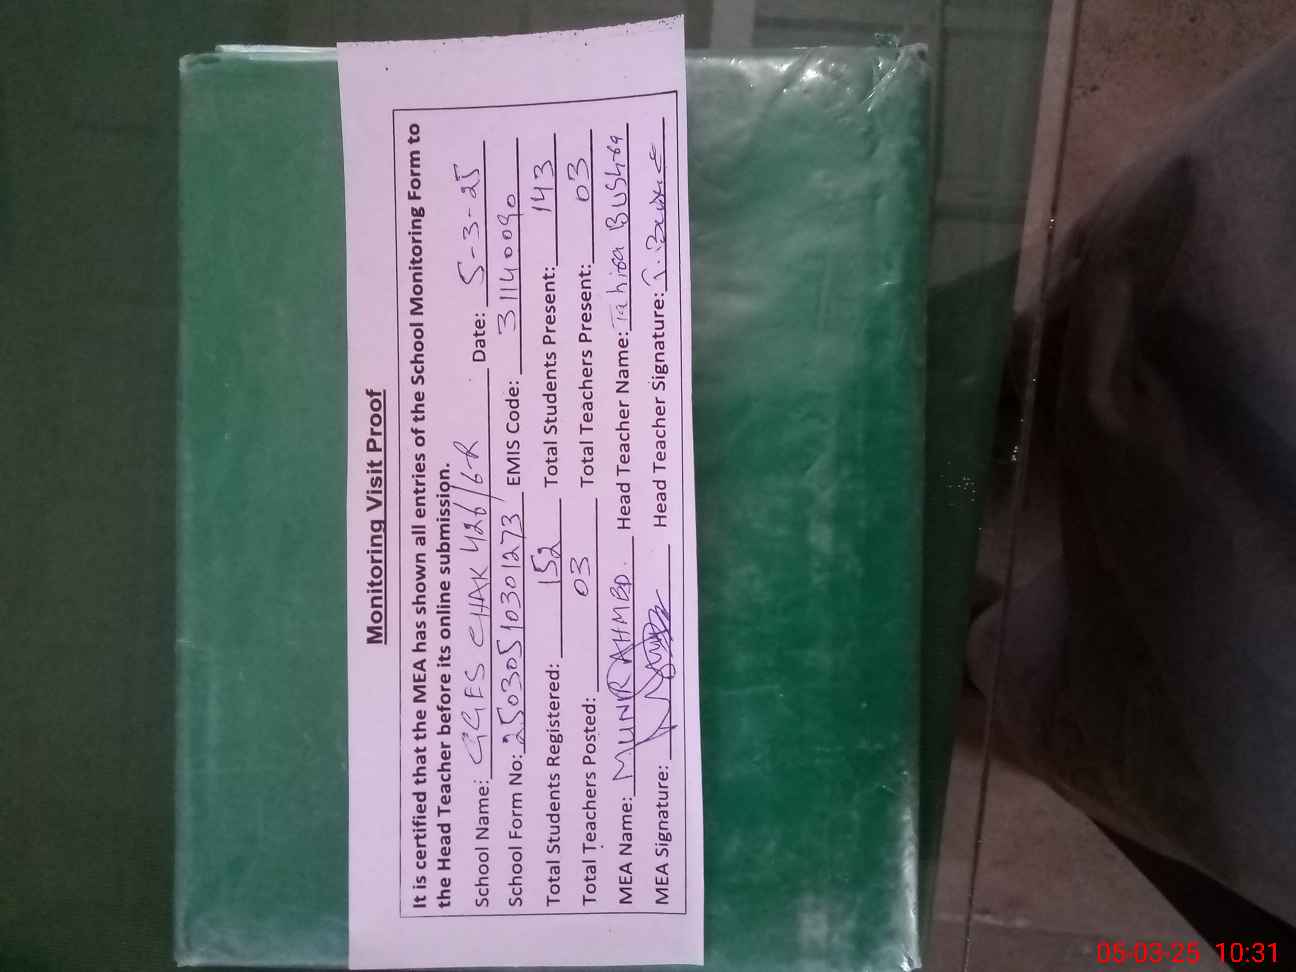 Monitoring Visit Proof
It is certified that the MEA has shown all entries of the School Monitoring Form to
the Head Teacher before its online submission.
School Name: GGES CHAK 426/6-R Date: 5-3-25
School Form No: 2503051030 1273 EMIS Code: 31140090
Total Students Registered: 152 Total Students Present: 143
Total Teachers Posted: 03 Total Teachers Present: 03
MEA Name: MUNIR AHMED. Head Teacher Name: Tahira BUSHRA
MEA Signature: Head Teacher Signature:
05-03-25 10:31